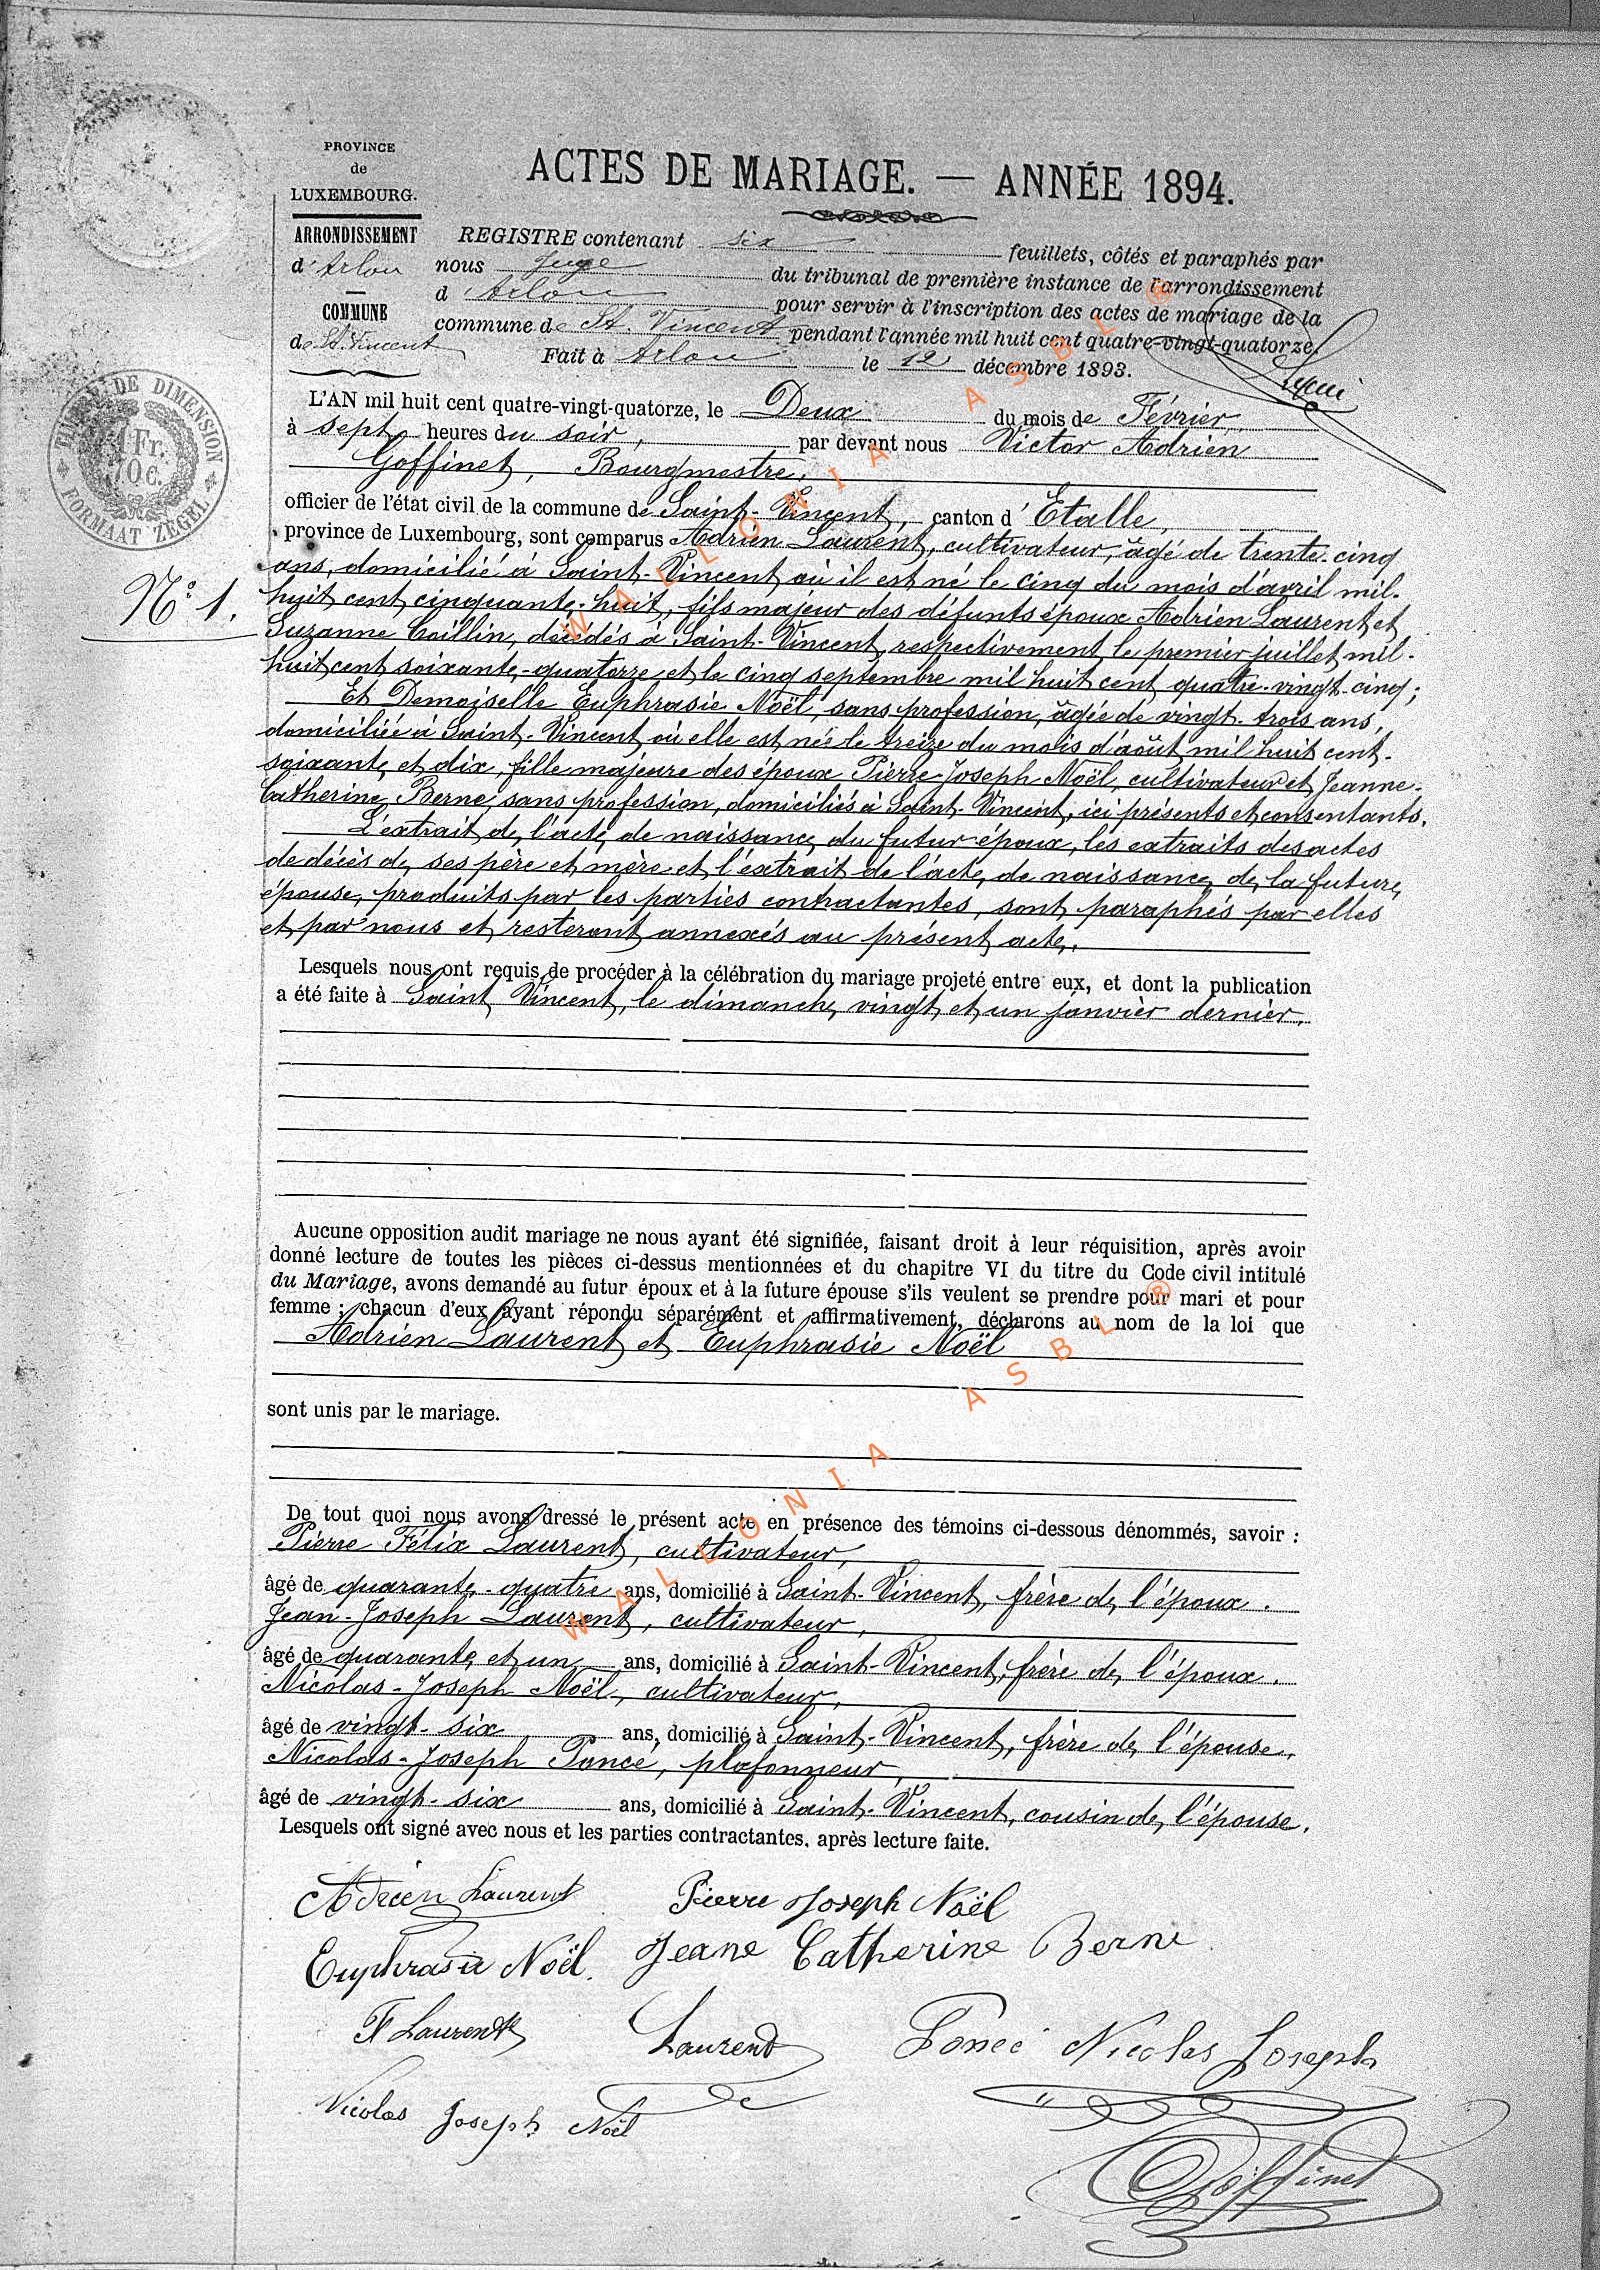 PROVINCE
de
LUXEMBOURG.
ARRONDISSEMENT
d'Arlon
COMMUNE
de St. Vincent
ACTES DE MARIAGE. — ANNÉE 1894.
REGISTRE contenant six feuillets, côtés et paraphés par
nous Juge du tribunal de première instance de l'arrondissement
d'Arlon pour servir à l'inscription des actes de mariage de la
commune de St. Vincent pendant l'année mil huit cent quatre-vingt-quatorze.
Fait à Arlon le 12 décembre 1893.
TIMBRE DE DIMENSION
1 Fr.
70 c.
FORMAAT ZEGEL
N° 1.
L'AN mil huit cent quatre-vingt-quatorze, le Deux du mois de Février,
à sept heures du soir, par devant nous Victor Adrien
Goffinet, Bourgmestre,
officier de l'état civil de la commune de Saint-Vincent, canton d'Etalle,
province de Luxembourg, sont comparus Adrien Laurent, cultivateur, âgé de trente-cinq
ans, domicilié à Saint-Vincent où il est né le cinq du mois d'avril mil-
huit cent cinquante-huit, fils majeur des défunts époux Adrien Laurent et
Suzanne Collin, décédés à Saint-Vincent, respectivement le premier juillet mil-
huit cent soixante-quatorze et le cinq septembre mil huit cent quatre-vingt-cinq;
Et Demoiselle Euphrasie Noël, sans profession, âgée de vingt-trois ans,
domiciliée à Saint-Vincent où elle est née le treize du mois d'août mil huit cent-
soixante et dix, fille majeure des époux Pierre-Joseph Noël, cultivateur et Jeanne-
Catherine Berne, sans profession, domiciliés à Saint-Vincent, ici présents et consentants.
L'extrait de l'acte de naissance du futur époux, les extraits des actes
de décès de ses père et mère et l'extrait de l'acte de naissance de la future
épouse, produits par les parties contractantes, sont paraphés par elles
et par nous et resteront annexés au présent acte.
Lesquels nous ont requis de procéder à la célébration du mariage projeté entre eux, et dont la publication
a été faite à Saint Vincent, le dimanche vingt et un janvier dernier.
Aucune opposition audit mariage ne nous ayant été signifiée, faisant droit à leur réquisition, après avoir
donné lecture de toutes les pièces ci-dessus mentionnées et du chapitre VI du titre du Code civil intitulé
du Mariage, avons demandé au futur époux et à la future épouse s'ils veulent se prendre pour mari et pour
femme ; chacun d'eux ayant répondu séparément et affirmativement, déclarons au nom de la loi que
Adrien Laurent et Euphrasie Noël
sont unis par le mariage.
De tout quoi nous avons dressé le présent acte en présence des témoins ci-dessous dénommés, savoir :
Pierre Félix Laurent, cultivateur,
âgé de quarante-quatre ans, domicilié à Saint-Vincent, frère de l'époux.
Jean-Joseph Laurent, cultivateur,
âgé de quarante et un ans, domicilié à Saint-Vincent, frère de l'époux.
Nicolas-Joseph Noël, cultivateur,
âgé de vingt-six ans, domicilié à Saint-Vincent, frère de l'épouse.
Nicolas-Joseph Poncé, plafonneur,
âgé de vingt-six ans, domicilié à Saint-Vincent, cousin de l'épouse.
Lesquels ont signé avec nous et les parties contractantes, après lecture faite.
Adrien Laurent Pierre Joseph Noël
Euphrasie Noël. Jeane Catherine Berne
F Laurent Laurent Poncé Nicolas Joseph
Nicolas Joseph Noël
Goffinet
WALLONIA ASBL ®
WALLONIA ASBL ®